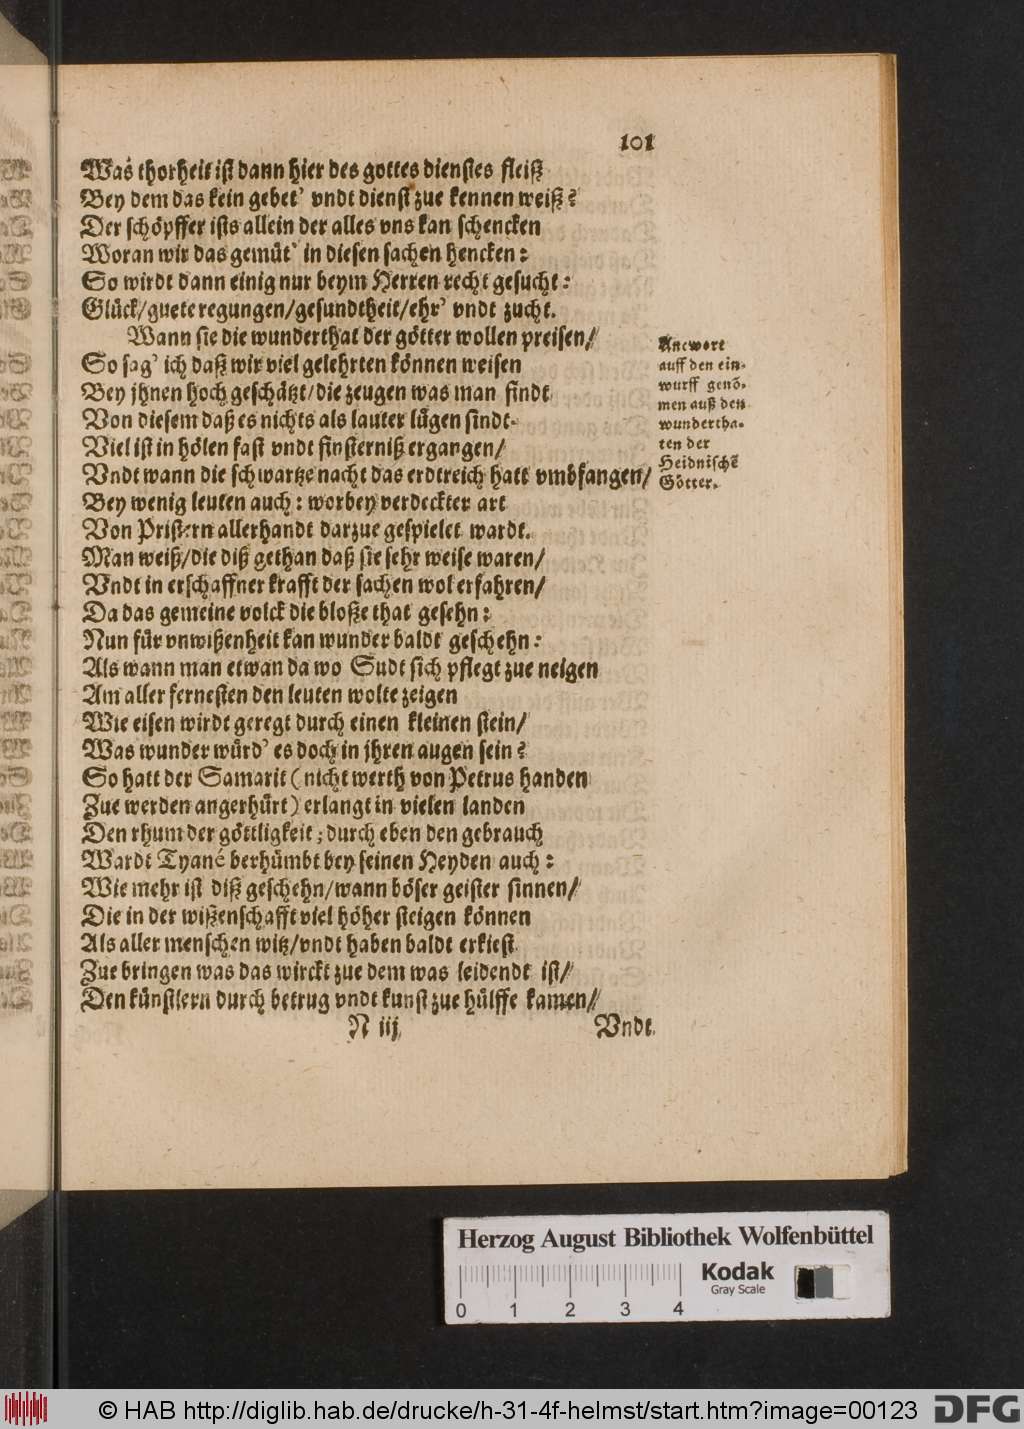 101
Was thorheit ist dann hier des gottes dienstes fleiß
Bey dem das kein gebet’ vndt dienst zue kennen weiß?
Der schöpffer ists allein der alles vns kan schencken
Woran wir das gemüt’ in diesen sachen hencken:
So wirdt dann einig nur beym Herren recht gesucht:
Glück/guete regungen/gesundtheit/ehr’ vndt zucht.
Wann sie die wunderthat der götter wollen preisen/
So sag’ ich daß wir viel gelehrten können weisen
Bey jhnen hoch geschätzt/die zeugen was man findt
Von diesem daß es nichts als lauter lügen sindt.
Viel ist in hölen fast vndt finsterniß ergangen/
Vndt wann die schwartze nacht das erdtreich hatt vmbfangen/
Bey wenig leuten auch: worbey verdeckter art
Von Pristern allerhandt darzue gespielet wardt.
Man weiß/die diß gethan daß sie sehr weise waren/
Vndt in erschaffner krafft der sachen wol erfahren/
Da das gemeine volck die bloße that gesehn:
Nun für vnwißenheit kan wunder baldt geschehn:
Als wann man etwan da wo Sudt sich pflegt zue neigen
Am aller fernesten den leuten wolte zeigen
Wie eisen wirdt geregt durch einen kleinen stein/
Was wunder würd’ es doch in jhren augen sein?
So hatt der Samarit (nicht werth von Petrus handen
Zue werden angerhürt) erlangt in vielen landen
Den rhum der göttligkeit; durch eben den gebrauch
Wardt Tyané berhümbt bey seinen Heyden auch:
Wie mehr ist diß geschehn/wann böser geister sinnen/
Die in der wißenschafft viel höher steigen können
Als aller menschen witz/vndt haben baldt erkiest
Zue bringen was das wirckt zue dem was leidendt ist/
Den künstlern durch betrug vndt kunst zue hülffe kamen/
N iij
Vndt
Antwort
auff den ein-
wurff genõ-
men auß den
wundertha-
ten der
Heidnischẽ
Götter.
Herzog August Bibliothek Wolfenbüttel
Kodak
Gray Scale
0 1 2 3 4
© HAB http://diglib.hab.de/drucke/h-31-4f-helmst/start.htm?image=00123
DFG